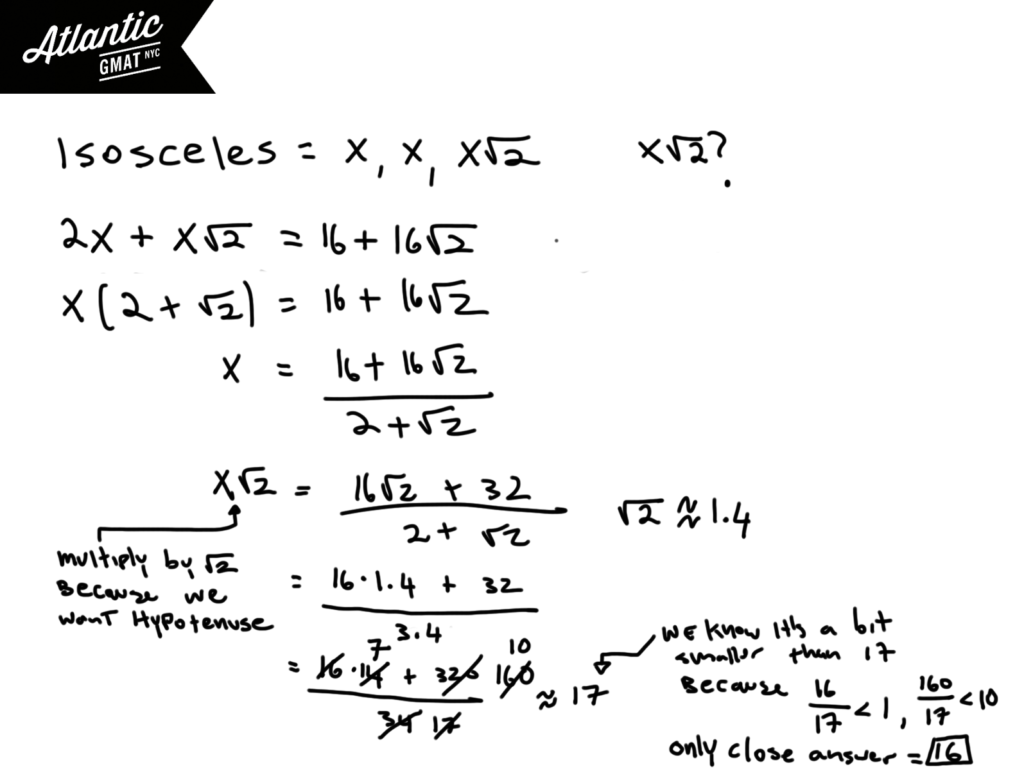 Atlantic
GMAT NYC
Isosceles = x, x, x√2 x√2?
2x + x√2 = 16 + 16√2
x(2 + √2) = 16 + 16√2
x = 16 + 16√2
2 + √2
x√2 = 16√2 + 32
2 + √2
√2 ≈ 1.4
multiply by √2
Because we
want Hypotenuse
= 16 · 1.4 + 32
3.4
7 10
= 16 · 14 + 320 160 ≈ 17
34 17
we know it's a bit
smaller than 17
Because 16/17 < 1, 160/17 < 10
only close answer = 16